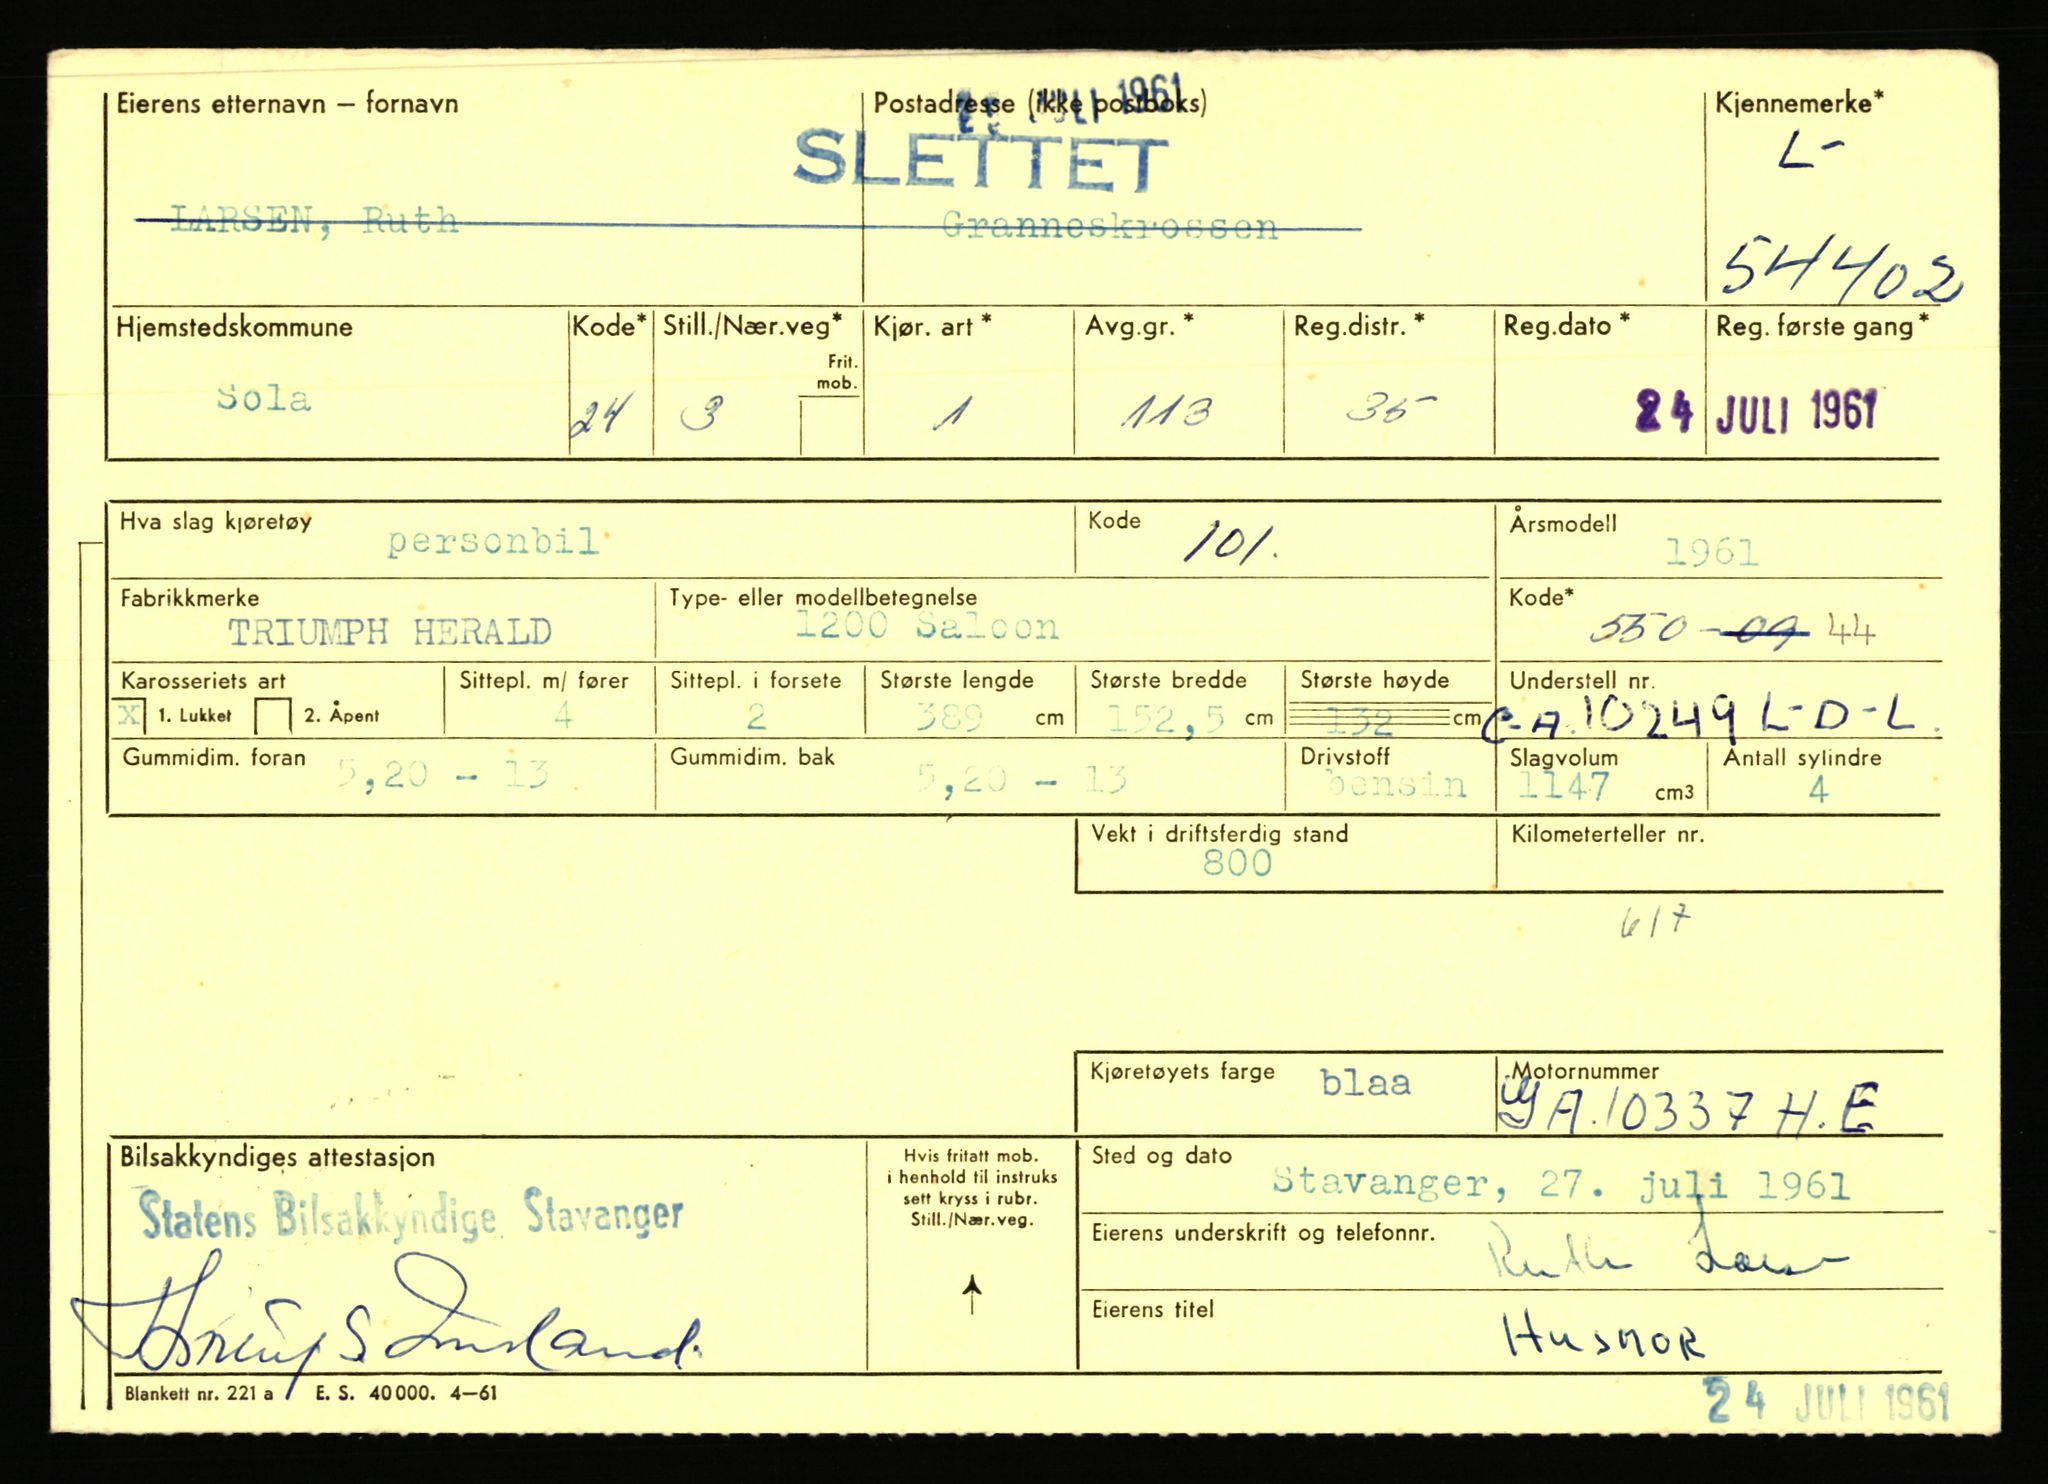 Eierens etternavn – fornavn
Postadresse (ikke postboks)
JULI 1961
Kjennemerke*
SLETTET
L-
LARSEN, Ruth
Granneskrossen
54402
Hjemstedskommune
Kode*
Still./Nær.veg*
Frit. mob.
Kjør. art *
Avg.gr. *
Reg.distr. *
Reg.dato *
Reg. første gang*
Sola
24
3
1
113
35
24 JULI 1961
Hva slag kjøretøy
personbil
Kode
101.
Årsmodell
1961
Fabrikkmerke
TRIUMPH HERALD
Type- eller modellbetegnelse
1200 Saloon
Kode*
550-09 44
Karosseriets art
X 1. Lukket 2. Åpent
Sittepl. m/ fører
4
Sittepl. i forsete
2
Største lengde
389 cm
Største bredde
152,5 cm
Største høyde
132 cm
Understell nr.
G-A.10249 L-D-L.
Gummidim. foran
5,20 - 13
Gummidim. bak
5,20 - 13
Drivstoff
bensin
Slagvolum
1147 cm3
Antall sylindre
4
Vekt i driftsferdig stand
800
Kilometerteller nr.
617
Kjøretøyets farge
blaa
Motornummer
A.10337 H.E
Bilsakkyndiges attestasjon
Statens Bilsakkyndige Stavanger
Hvis fritatt mob.
i henhold til instruks
sett kryss i rubr.
Still./Nær.veg.
Sted og dato
Stavanger, 27. juli 1961
Eierens underskrift og telefonnr.
Ruth Larsen
Eierens titel
Husmor
Blankett nr. 221 a E. S. 40000. 4–61
24 JULI 1961